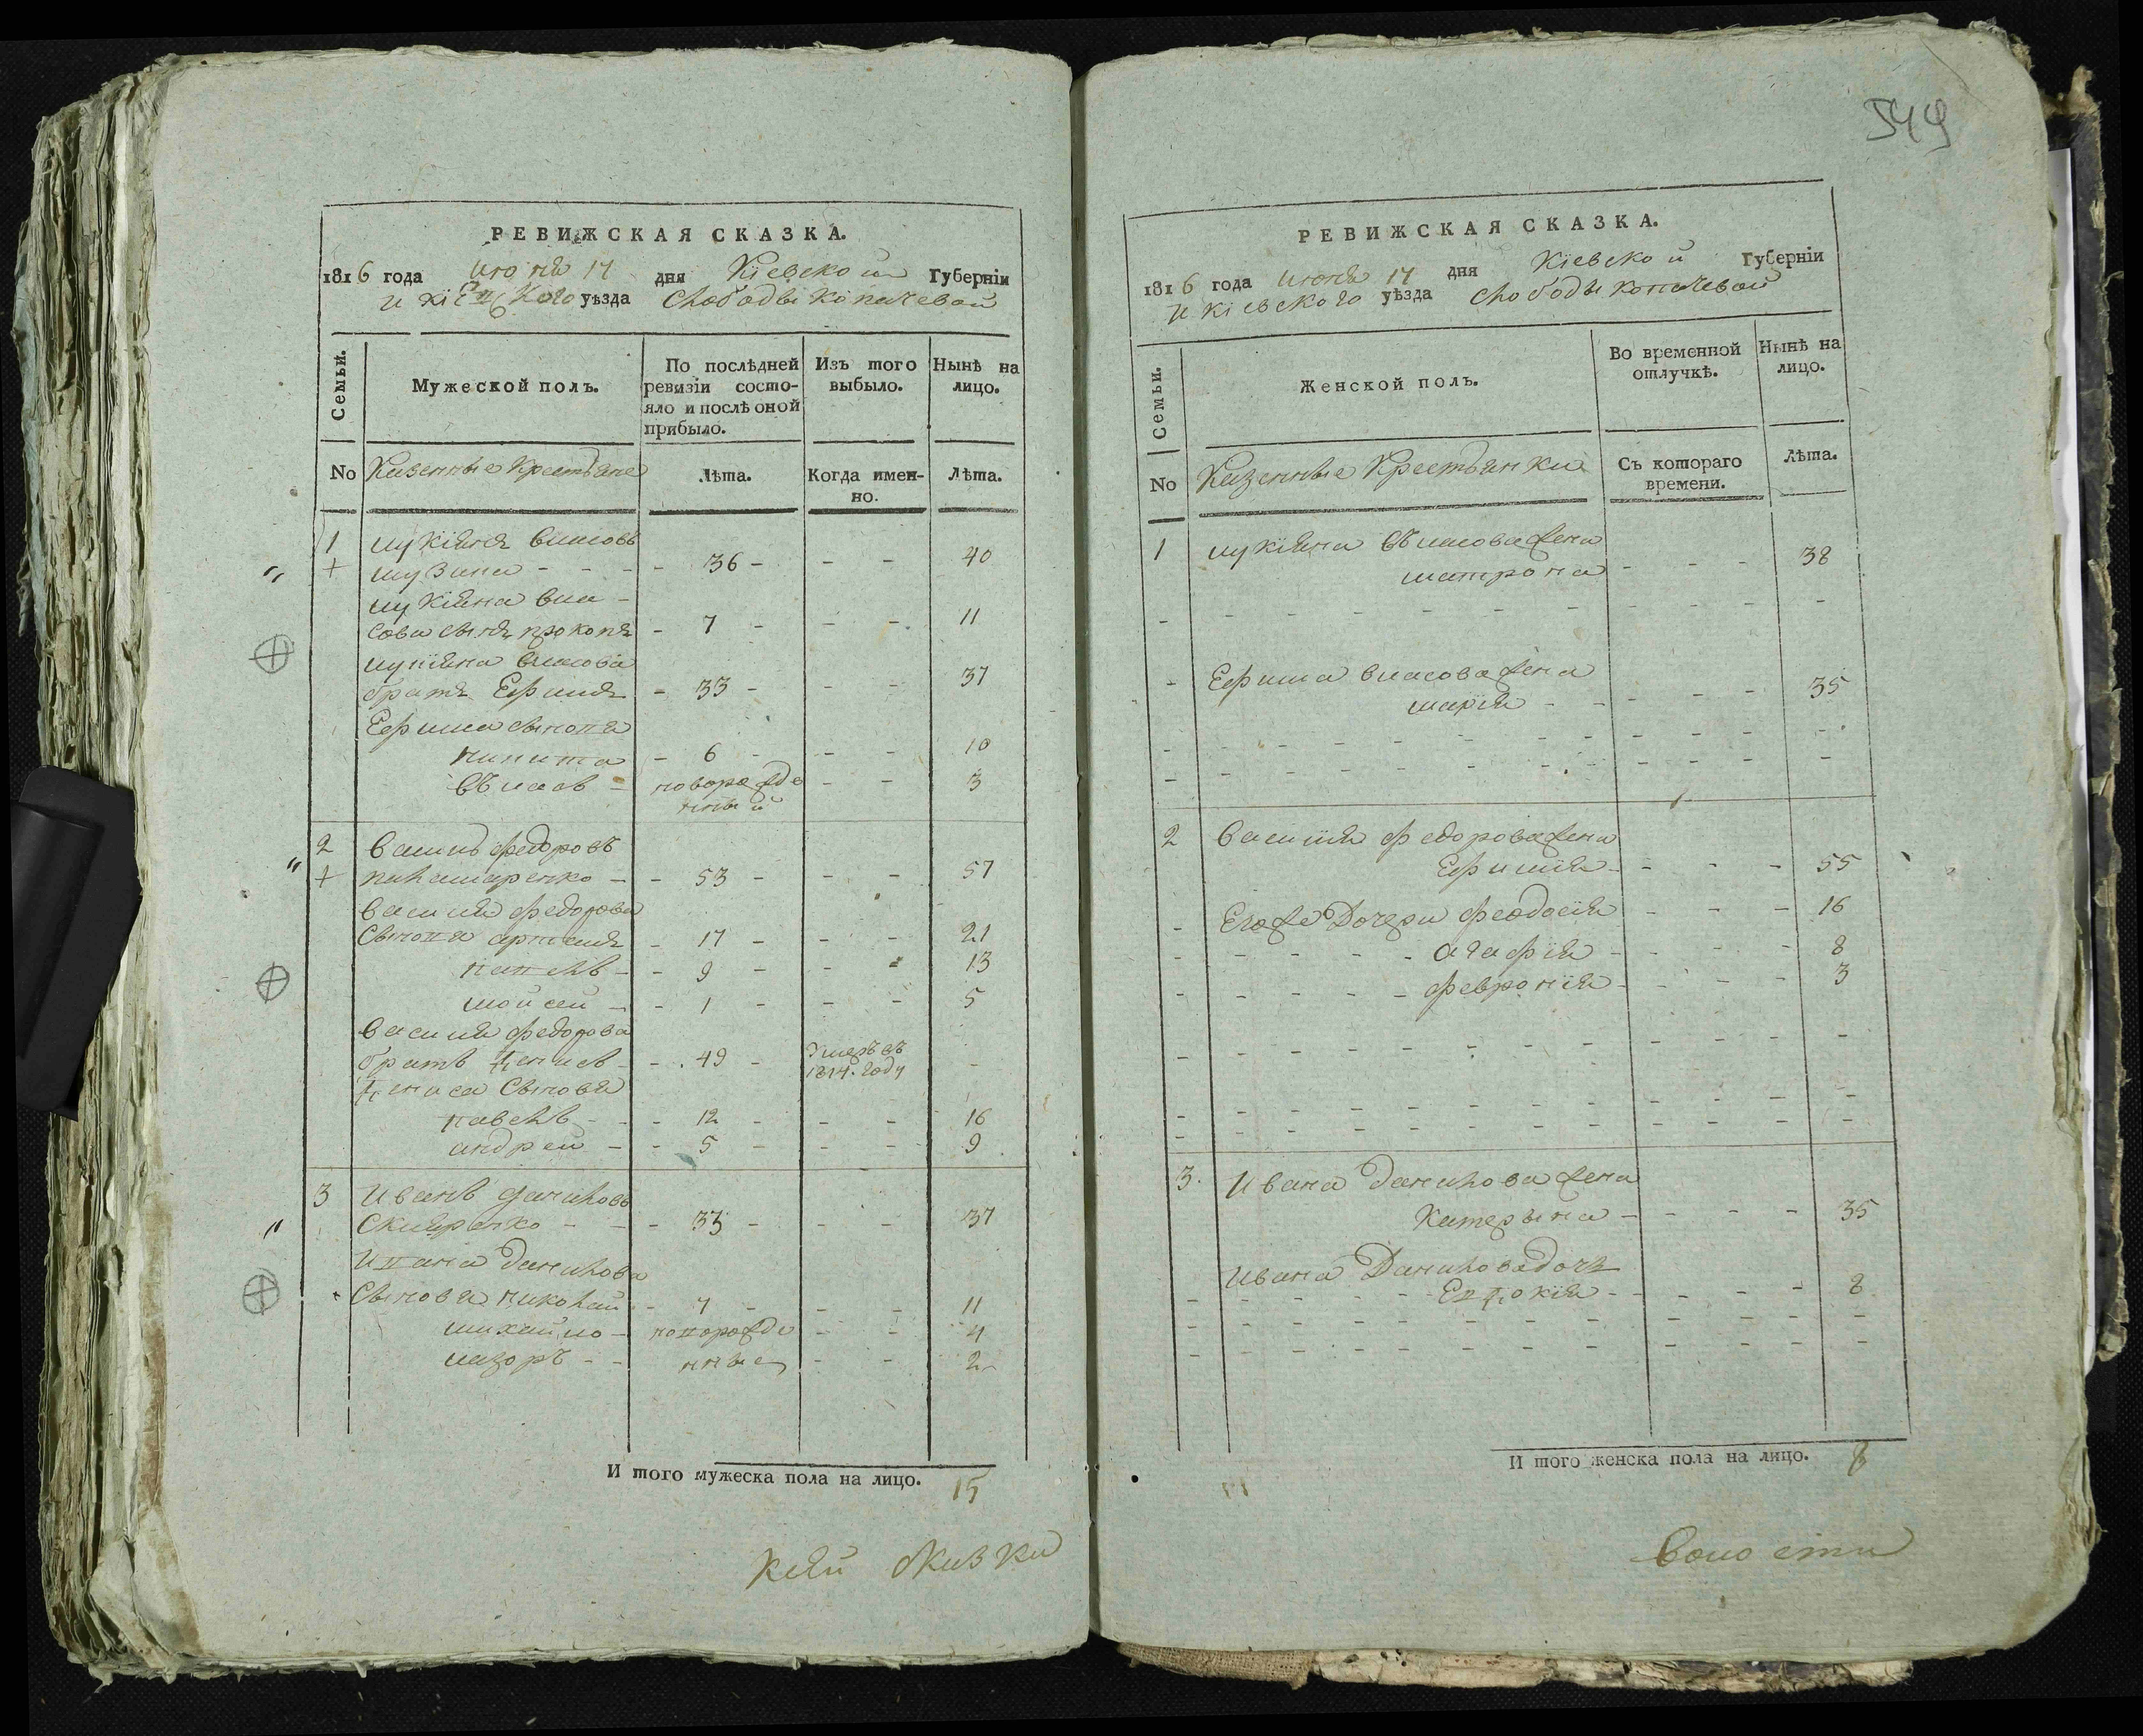 РЕВИЖСКАЯ СКАЗКА.
1816 года июня 17 дня Кіевской Губерніи
и кіевскаго уѣзда слободы копачевой
Семьи.
Мужеской полъ.
По послѣдней ревизіи состо-
яло и послѣ оной
прибыло.
Изъ того
выбыло.
Нынѣ на
лицо.
No Казенные Крестьяне
Лѣта.
Когда имен-
но.
Лѣта.
1 лукіянъ власовъ
- 36 - - - 40
лукіяна вла-
сова сынъ прокопъ - 7 - - - 11
лукіяна власова
братъ Ефимъ - 33 - - - 37
Ефима сыновя
никита - 6 - - - 10
Власъ - новорожде - - 3
нный
2 василь федоровъ
- 53 - - - 57
василия федорова
Сыновя артемъ - 17 - - - 21
павелъ - - 9 - - - 13
мойсей - - 1 - - - 5
василия федорова
братъ денисъ - - 49 - Умеръ въ
1814. году -
дениса Сыновя
павелъ - - - 12 - - - 16
андрей - - 5 - - - 9
3 Иванъ даниловъ
Скляренко - - - 33 - - - 37
Ивана данилова
Сыновя николай - 7 - - - 11
михайло - новорожде - - 4
лазоръ - - нные - - 2
И того мужеска пола на лицо. 15
549
РЕВИЖСКАЯ СКАЗКА.
1816 года июня 17 дня Кіевской Губерніи
и кіевского уѣзда слободы копачевой
Семьи.
Женской полъ.
Во временной
отлучкѣ.
Нынѣ на
лицо.
No Казенные Крестьянки
Съ котораго
времени.
Лѣта.
1 лукіяна власова жена
матрона - - - 38
- Ефима власова жена
марія - - - - 35
2 василия федорова жена
Ефимія - - - - 55
- Егоже Дочери феодосія - - - 16
агафія - - - 8
феврония - - - 3
3. Ивана данилова жена
Катерына - - - - 35
Ивана Данилова дочь
Евдокія - - - - 8
И того женска пола на лицо. 8
Волости